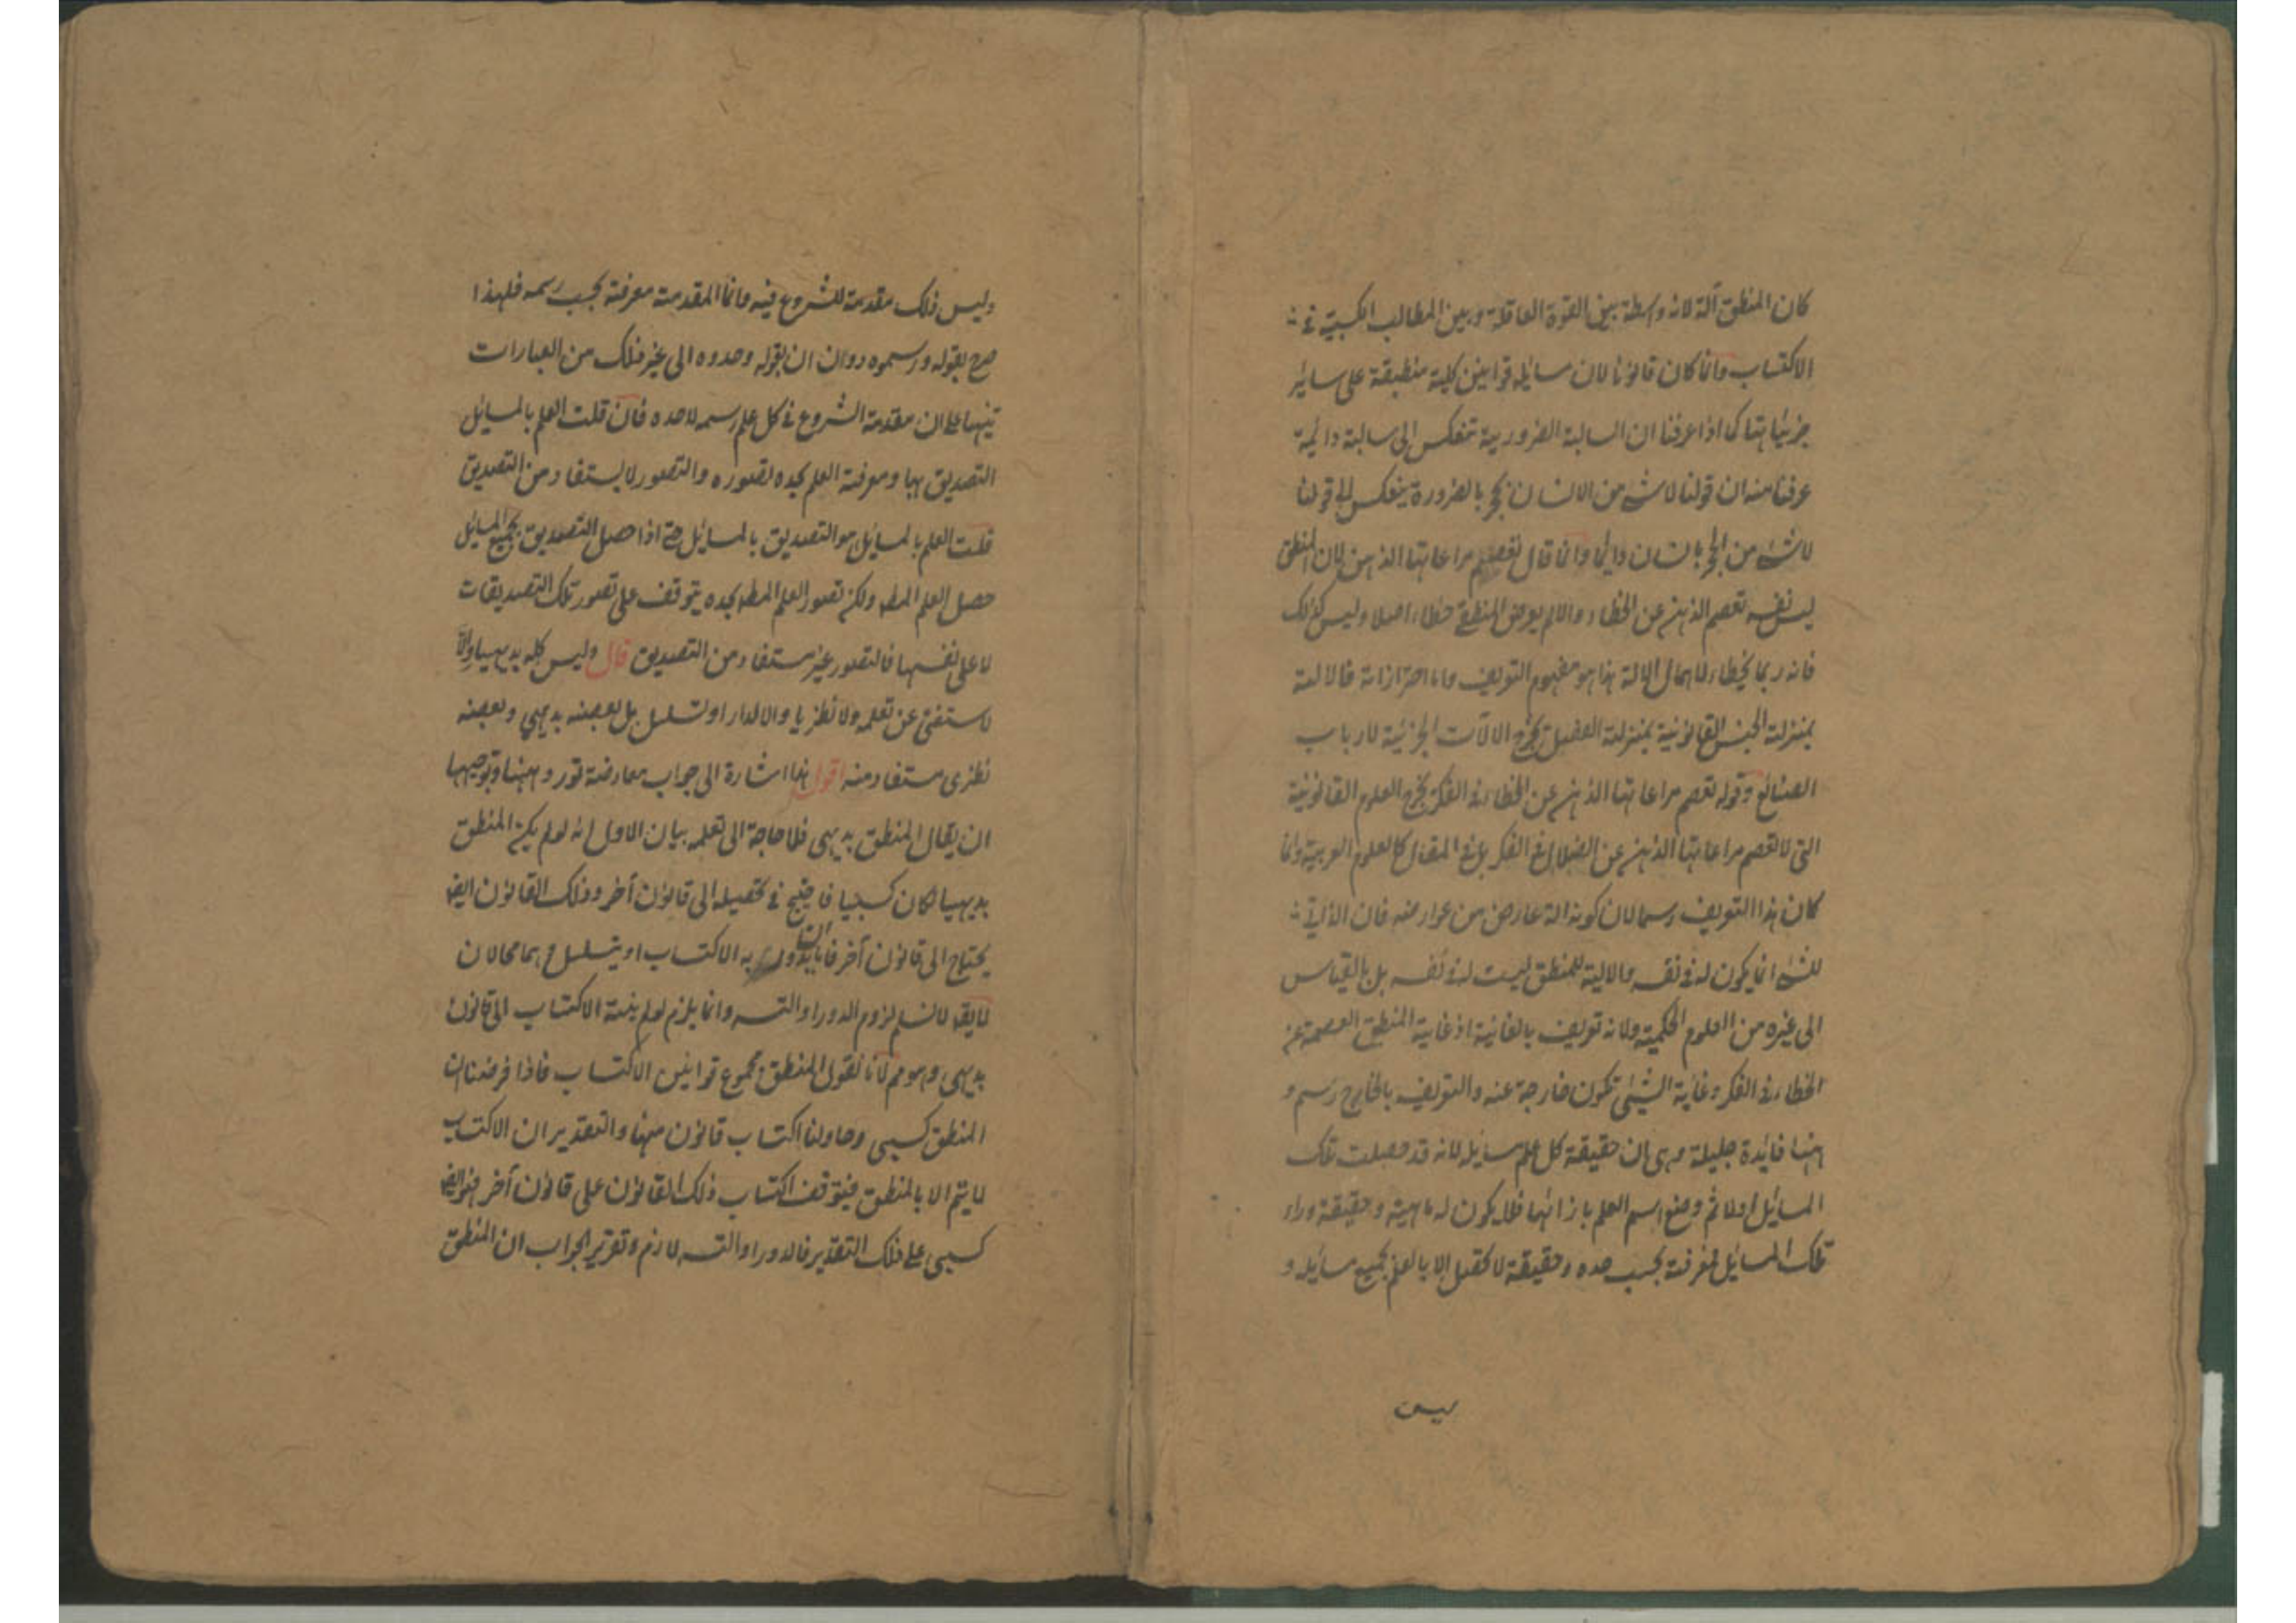 كان المنطق آلة لانه واسطة بين القوة العاقلة وبين المطالب الكسبية في
الاكتساب وانما كان قانونا لان مسائله قوانين كلية منطبقة على سائر
جزئياتها كما اذا عرفنا ان السالبة الضرورية تنعكس الى سالبة دائمة
عرفنا منه ان قولنا لا شئ من الانسان بحجر بالضرورة ينعكس الى قولنا
لا شئ من الحجر بانسان دائما وانما قال تعصم مراعاتها الذهن لان المنطق
ليس نفسه تعصم الذهن عن الخطاء والا لم يعرض المنطقي خطاء اصلا وليس كذلك
فانه ربما يخطاء لاهمال الالة هذا هو مفهوم التعريف واما احترازاته فالالة
بمنزلة الجنس القانونية بمنزلة الفصل يخرج الالات الجزئية لارباب
الصنائع وقوله تعصم مراعاتها الذهن عن الخطاء في الفكر يخرج العلوم القانونية
التي لا تعصم مراعاتها الذهن عن الضلال في الفكر بل في المقال كالعلوم العربية وانما
كان هذا التعريف رسما لان كونه الة عارض من عوارضه فان الذاتي
للشئ انما يكون له في نفسه والالية للمنطق ليست له في نفسه بل بالقياس
الى غيره من العلوم الحكمية ولانه تعريف بالغاية اذ غاية المنطق العصمة عن
الخطاء في الفكر وغاية الشئ تكون خارجة عنه والتعريف بالخارج رسم و
ههنا فايدة جليلة وهي ان حقيقة كل علم مسايله لانه قد حصلت تلك
المسايل اولا ثم وضع اسم العلم بازائها فلا يكون له ماهية وحقيقة وراء
تلك المسايل فمعرفته بحسب حده وحقيقته لا تحصل الا بالعلم بجميع مسايله و
ليس
وليس ذلك مقدمة للشروع فيه وانما المقدمة معرفته بحسب رسمه فلهذا
صرح بقوله ورسموه دون ان يقول وحدوه الى غير ذلك من العبارات
تنبيها على ان مقدمة الشروع في كل علم رسمه لا حده فان قلت العلم بالمسايل
التصديق بها ومعرفة العلم بحده تصوره والتصور لا يستفاد من التصديق
قلت العلم بالمسايل هو التصديق بالمسايل حتى اذا حصل التصديق بجميع المسايل
حصل العلم المط ولكن تصور العلم المط بحده يتوقف على تصور تلك التصديقات
لا على نفسها فالتصور غير مستفاد من التصديق قال وليس كله بديهيا والّا
لاستغنى عن تعلمه ولا نظريا والا لدار او تسلسل بل بعضه بديهي وبعضه
نظرى مستفاد منه اقول هذا اشارة الى جواب معارضة تورد ههنا وتوجيهها
ان يقال المنطق بديهى فلا حاجة الى تعلمه بيان الاول انه لو لم يكن المنطق
بديهيا لكان كسبيا فاحتيج في تحصيله الى قانون آخر وذلك القانون ايضا
يحتاج الى قانون آخر فاما ان يدور به الاكتساب او يتسلسل وهما محالان
لا يقال لا نسلم لزوم الدور او التسـ وانما يلزم لو لم ينته الاكتساب الى قانون
بديهى وهو مم لانا نقول المنطق مجموع قوانين الاكتساب فاذا فرضنا ان
المنطق كسبى وحاولنا اكتساب قانون منها والتقدير ان الاكتساب
لا يتم الا بالمنطق فيتوقف اكتساب ذلك القانون على قانون آخر فهو ايضا
كسبى على ذلك التقدير فالدور او التسـ لازم وتقرير الجواب ان المنطق